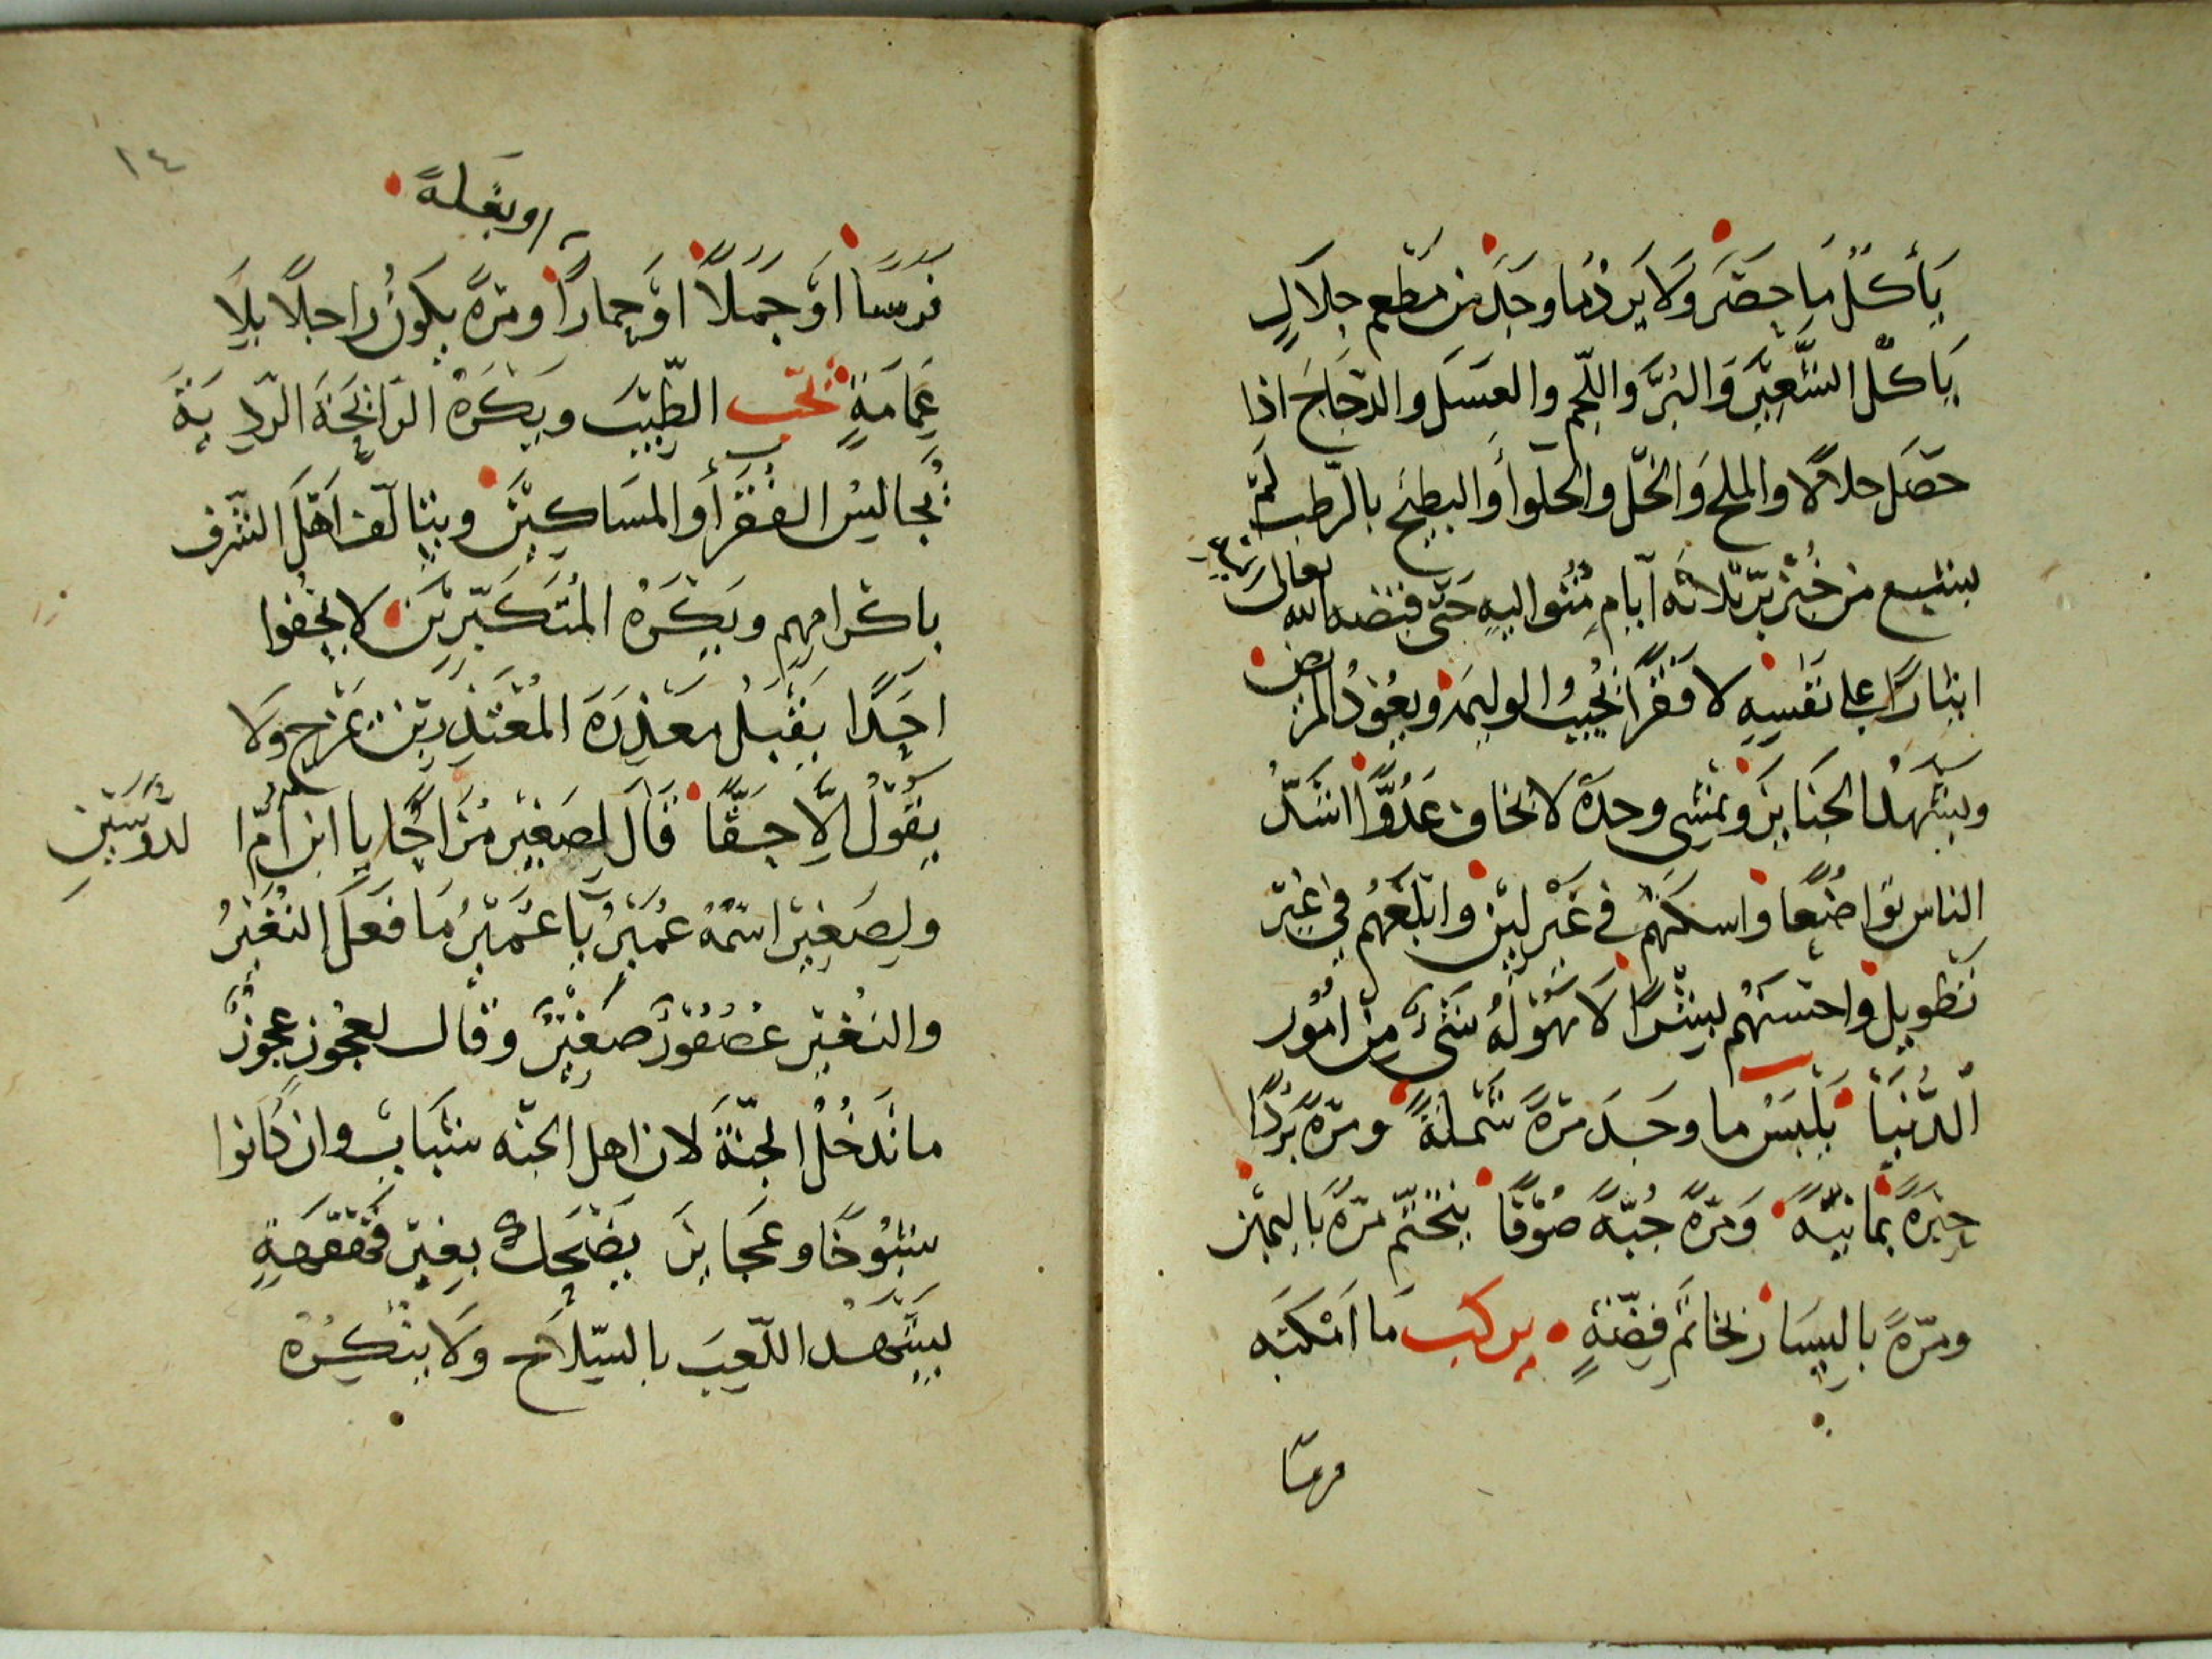 يَأكلُ مَا حَضَرَ وَلَا يَردُّ مَا وجَدَ مِن مَطعم حلالٍ
يَاكلُ الشَّعِيرَ وَالبُرَّ وَاللَّحم والعَسَل والدّجَاجَ اذا
حصَل حلالًا والملحَ وَالخلَّ والحلوأ وَالبطيخَ بالرّطب لم
يشبع من خُبزِ برّ ثلاثة أيامٍ متواليهٍ حَتّى قبَضه الله تعالى
ايثارًا على نفسِهِ لا فقرًا يُجيبُ الوليمَة ويعُودُ المرضى
ويشهَدُ الجنَايزَ ويمشِى وحدَهُ لا يخاف عَدُوًّا اشَدُّ
الناس تَواضُعًا واسكَنهُم في غَيرِ لِين وابلَغهُم في غيرِ
تَطويل واحسَنهُم بِشرًا لَا يهُولهُ شَىءٌ مِن أمُور
الدُّنيَا يَلبَسُ ما وجَدَ مرّةً شملَةً ومرّةً بُردًا
حِبَرَةً يمانيَّةً وَمرّةً جُبَّةً صُوفًا يتختّم مرّةً بالِيمِين
ومرّةً بالِيسَار بخاتَم فِضّةٍ يركب مَا اَمْكنَه
فرسًا
اوبغلةً
فرَسًا اوَ جمَلًا اوَ حِمارًا ومرّةً يكونُ راجلًا بلَا
عِمَامَةٍ يحّب الطِّيبَ ويَكرَهُ الرَّايحَةَ الرّديَةَ
يُجاليسُ الفُقرَأ وَالمسَاكِينَ ويتَالَّف اَهَلَ الشّرف
باكرامِهِم ويَكرَهُ المُتَكبّرِينَ لا يجفوا
احَدًا يَقبَلُ مَعذِرَةَ المُعتَذِرِين يَمْزح وَلا
يقُولُ إلَّا حَقًّا قَالَ لِصَغِيرٍ مُزَاحًا يا ابن امّ
لدَوسَين
ولِصَغِيرٍ اسمُهُ عُميَرٌ يَا عُمَيرُ مَا فعَل النُغَيرُ
والنُغَير عُصفُورٌ صَغِيرٌ وقال لعجُوز عجوزٌ
ما تَدخُلُ الجنّةَ لان اهل الجنّه شبَاب وان كَانوا
شيُوخًا وعَجايزَ يَضحَك بغيرِ قَهقَهَةٍ
يشهَد اللّعِبَ بالسِّلاح ولَا ينكِرُه
١٤